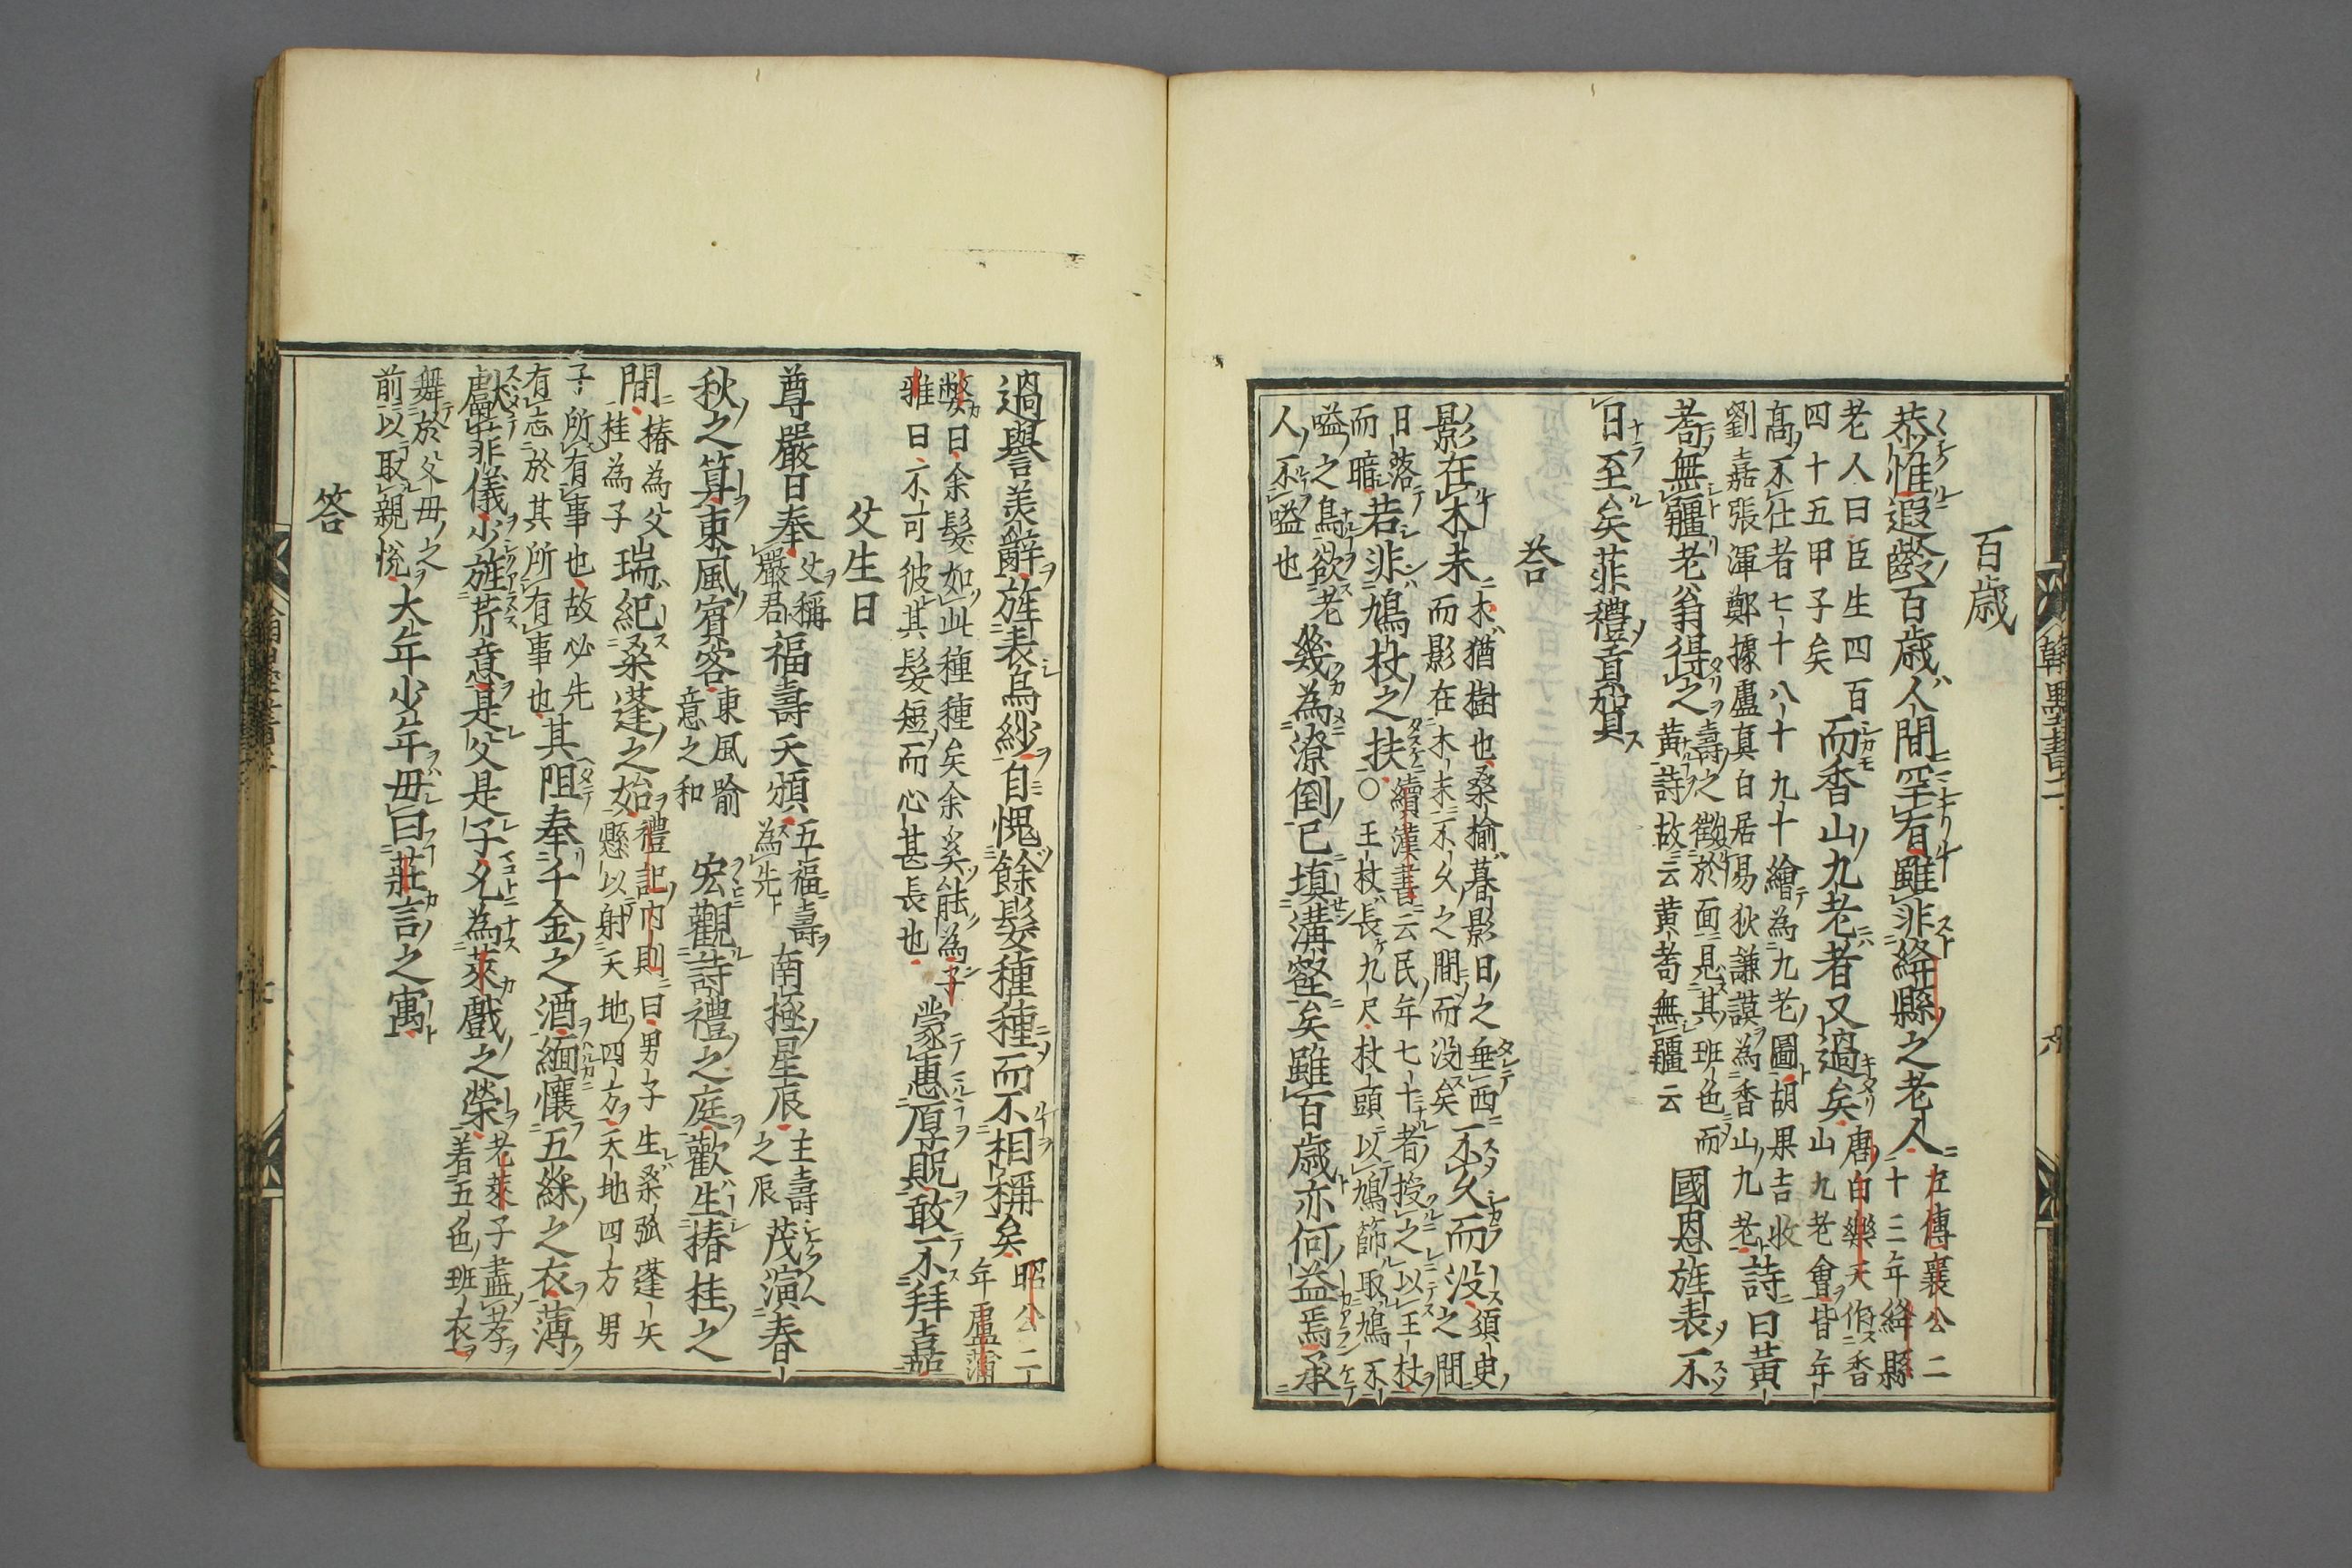 百歳
恭惟遐齡百歳人間罕有雖非絳縣之老人左傳襄公二
十三年絳縣
老人曰臣生四百
四十五甲子矣
而香山九老者又過矣唐白樂天作香
山九老會皆年
髙不仕者七十八十九十繪為九老圖胡果吉收
劉嘉張渾鄭據盧真白居易狄謙謨為香山九老
詩曰黄
耉無疆老翁得之壽之徵於面見其班色而
黄詩故云黄耉無疆云
國恩旌表不
日至矣菲禮貢賀
荅
影在木末木猶樹也桑榆暮影日之垂西
而影在木末不久之間而没矣
不久而没須臾
之間
日落
而暗
若非鳩杖之扶續漢書云民年七十者授之以王杖
〇王杖長九尺杖頭以鳩飾取鳩不
嗌之鳥欲老
人不嗌也
幾為潦倒已填溝壑矣雖百歳亦何益焉承
過譽羨辭旌表烏紗自愧餘髮種種而不相稱矣昭公二
年盧蒲
嫳曰余髮如此種種矣余奚能為子
雅曰不可彼其髮短而心甚長也
蒙惠厚貺敢不拜嘉
父生日
尊嚴日奉父稱
嚴君
福壽天頒五福壽
為先
南極星辰主壽
之辰
茂演春
秋之算東風賓客東風喻
意之和
宏觀詩禮之庭歡生椿桂之
間椿為父
桂為子
瑞紀桑蓬之始禮記内則曰男子生桑弧蓬矢
懸以射天地四方天地四方男
子所有事也故必先
有志於其所有事也
其阻奉千金之酒緬懷五綵之衣薄
獻菲儀少旌芹意是父是子允為萊戲之榮老萊子盡孝
着五色班衣
舞於父母之
前以取親悦
大年少年毋曰莊言之寓
答